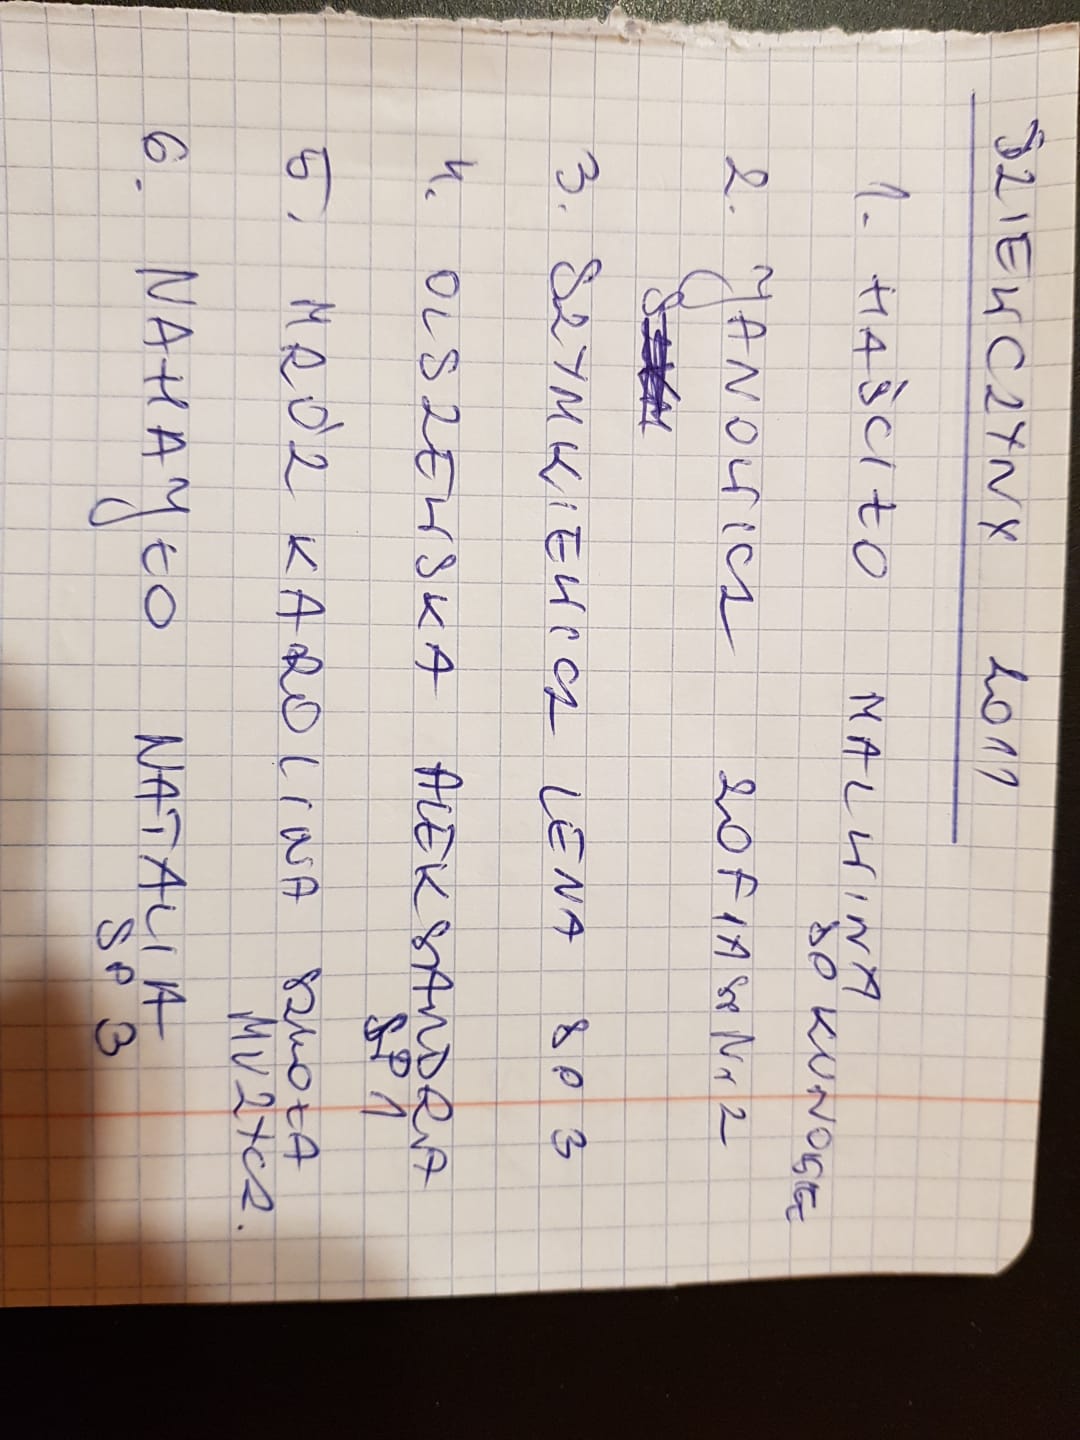 DZIEWCZYNY 2011
1. WAŚCIŁO MALWINA
SP
2. JANOWICZ ZOFIA SP Nr 2
3. SZYMKIEWICZ LENA SP 3
4. OLSZEWSKA ALEKSANDRA
SP 1
5. MRÓZ KAROLINA SZKOŁA
MUZYCZ.
6. NAWAJŁO NATALIA
SP 3